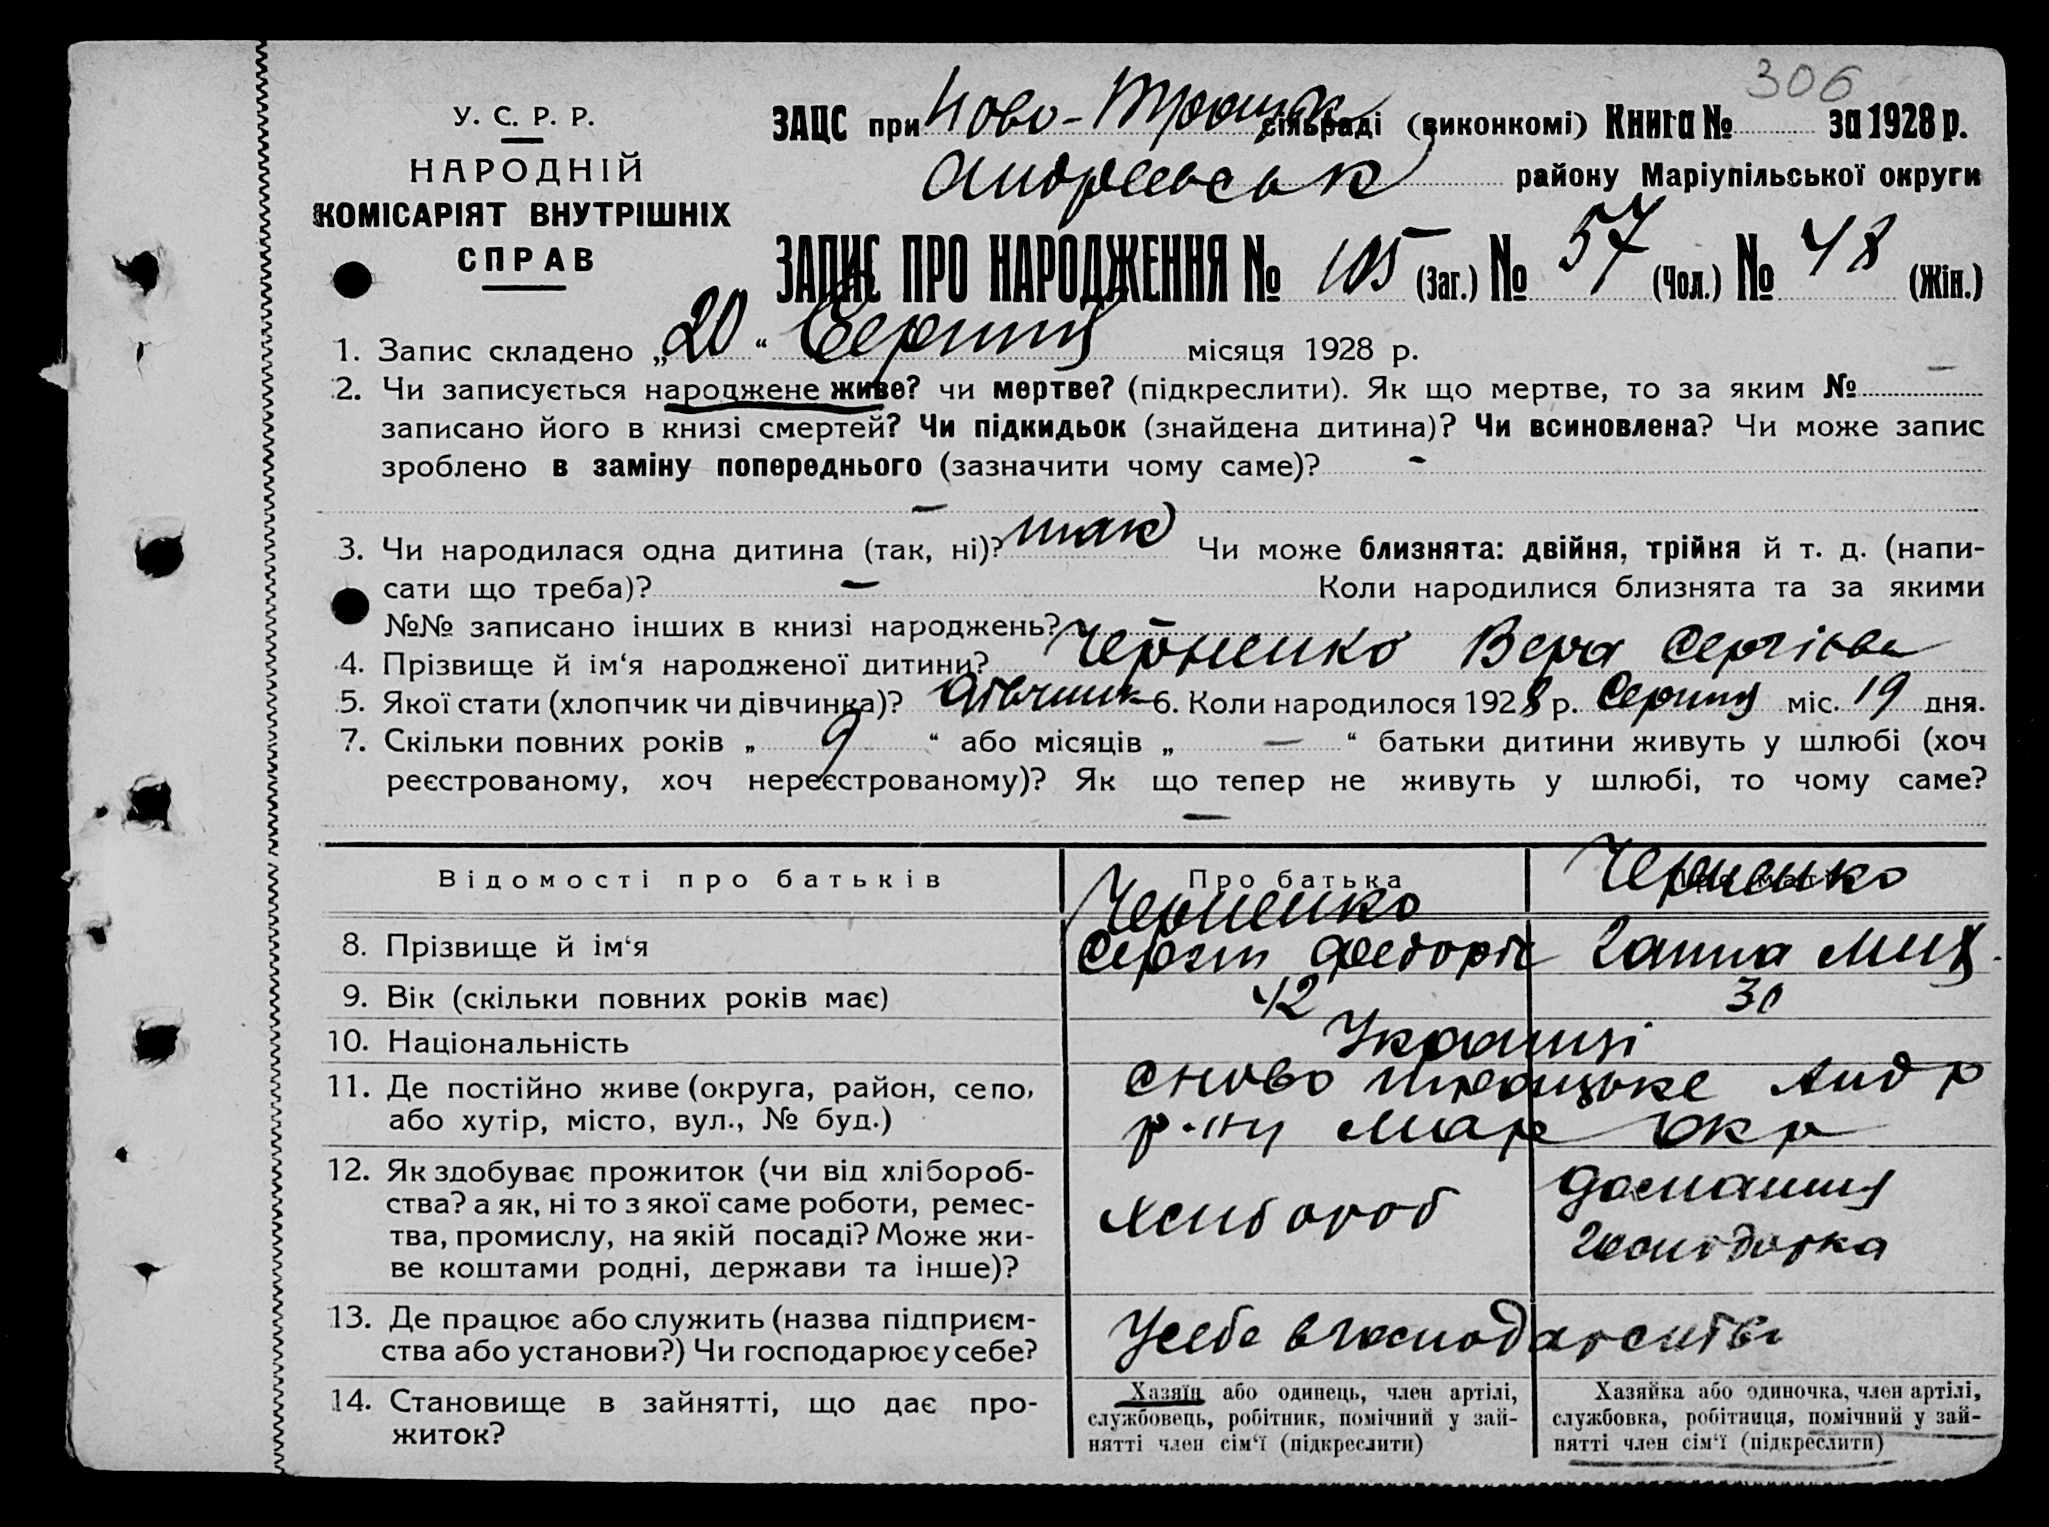 306
У. С. Р. Р.
НАРОДНІЙ
КОМІСАРІЯТ ВНУТРІШНІХ
СПРАВ
ЗАЦС при Ново-Троицк сільраді (виконкомі) Книга № за 1928 р.
Андреевськ району Маріупільської округи
ЗАПИС ПРО НАРОДЖЕННЯ № 105 (Заг.) № 57 (Чол.) № 48 (Жін.)
1. Запис складено „20“ Серпня місяця 1928 р.
2. Чи записується народжене живе? чи мертве? (підкреслити). Як що мертве, то за яким № —
записано його в книзі смертей? Чи підкидьок (знайдена дитина)? Чи всиновлена? Чи може запис
зроблено в заміну попереднього (зазначити чому саме)? -
—
3. Чи народилася одна дитина (так, ні)? так Чи може близнята: двійня, трійня й т. д. (напи-
сати що треба)? — Коли народилися близнята та за якими
№№ записано інших в книзі народжень? —
4. Прізвище й ім‘я народженої дитини? Черненко Вера Сергіевн
5. Якої стати (хлопчик чи дівчинка)? дівчинк 6. Коли народилося 1928 р. Серпня міс. 19 дня.
7. Скільки повних років „ 9 “ або місяців „ — “ батьки дитини живуть у шлюбі (хоч
реєстрованому, хоч нереєстрованому)? Як що тепер не живуть у шлюбі, то чому саме?
—
Відомості про батьків Про батька
Черненко Черненко
8. Прізвище й ім‘я Сергій Федоров Ганна Мих.
9. Вік (скільки повних років має) 42 30
10. Національність Українці
11. Де постійно живе (округа, район, село, с ново троицьке Андр
або хутір, місто, вул., № буд.) р-ну Мар Окр
12. Як здобуває прожиток (чи від хлібороб-
ства? а як, ні то з якої саме роботи, ремес-
тва, промислу, на якій посаді? Може жи-
ве коштами родні, держави та інше)?
хлибороб домашня
господарка
13. Де працює або служить (назва підприєм-
ства або установи?) Чи господарює у себе?
У себе в господарстві
14. Становище в зайнятті, що дає про-
житок?
Хазяїн або одинець, член артілі,
службовець, робітник, помічний у зай-
нятті член сім‘ї (підкреслити)
Хазяйка або одиночка, член артілі,
службовка, робітниця, помічний у зай-
нятті член сім‘ї (підкреслити)